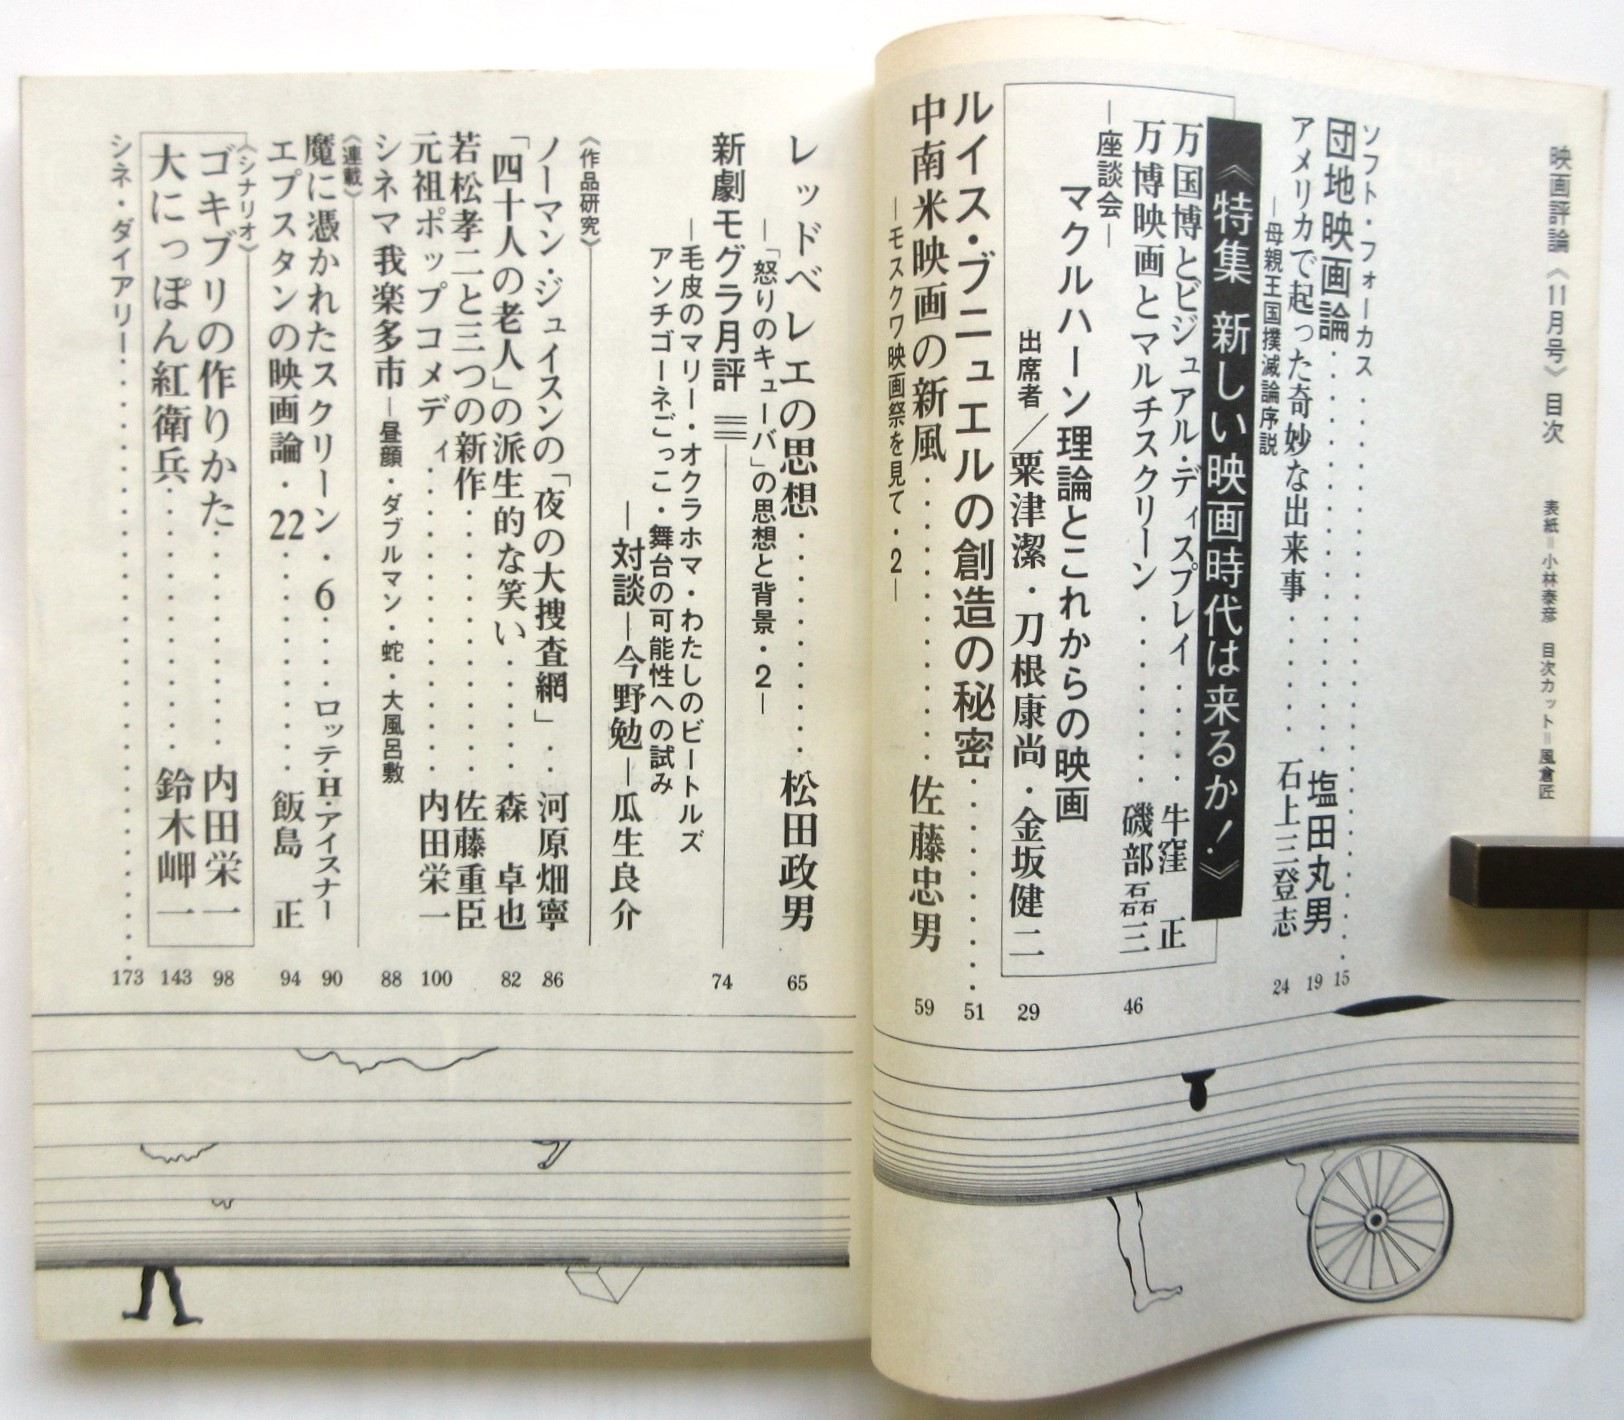 映画評論《11月号》目次 表紙＝小林泰彦 目次カット＝風倉匠
ソフト・フォーカス……………15
団地映画論……………塩田丸男 19
アメリカで起った奇妙な出来事……石上三登志 24
―母親王国撲滅論序説
《特集 新しい映画時代は来るか！》
万国博とビジュアル・ディスプレイ……牛窪 正
万博映画とマルチスクリーン……磯部磊三 46
―座談会―
マクルハーン理論とこれからの映画
出席者／粟津潔・刀根康尚・金坂健二 29
ルイス・ブニュエルの創造の秘密……51
中南米映画の新風……佐藤忠男 59
―モスクワ映画祭を見て・2―
レッドベレエの思想……松田政男 65
―「怒りのキューバ」の思想と背景・2―
新劇モグラ月評 74
―毛皮のマリー・オクラホマ・わたしのビートルズ
アンチゴーネごっこ・舞台の可能性への試み
―対談―今野勉―瓜生良介
《作品研究》
ノーマン・ジュイスンの「夜の大捜査網」……河原畑寧 86
「四十人の老人」の派生的な笑い……森 卓也 82
若松孝二と三つの新作……佐藤重臣
元祖ポップコメディ……内田栄一 100
シネマ我楽多市―昼顔・ダブルマン・蛇・大風呂敷 88
《連載》
魔に憑かれたスクリーン・6……ロッテ・H・アイスナー 90
エプスタンの映画論・22……飯島 正 94
《シナリオ》
ゴキブリの作りかた……内田栄一 98
大にっぽん紅衛兵……鈴木岬一 143
シネ・ダイアリー……………173